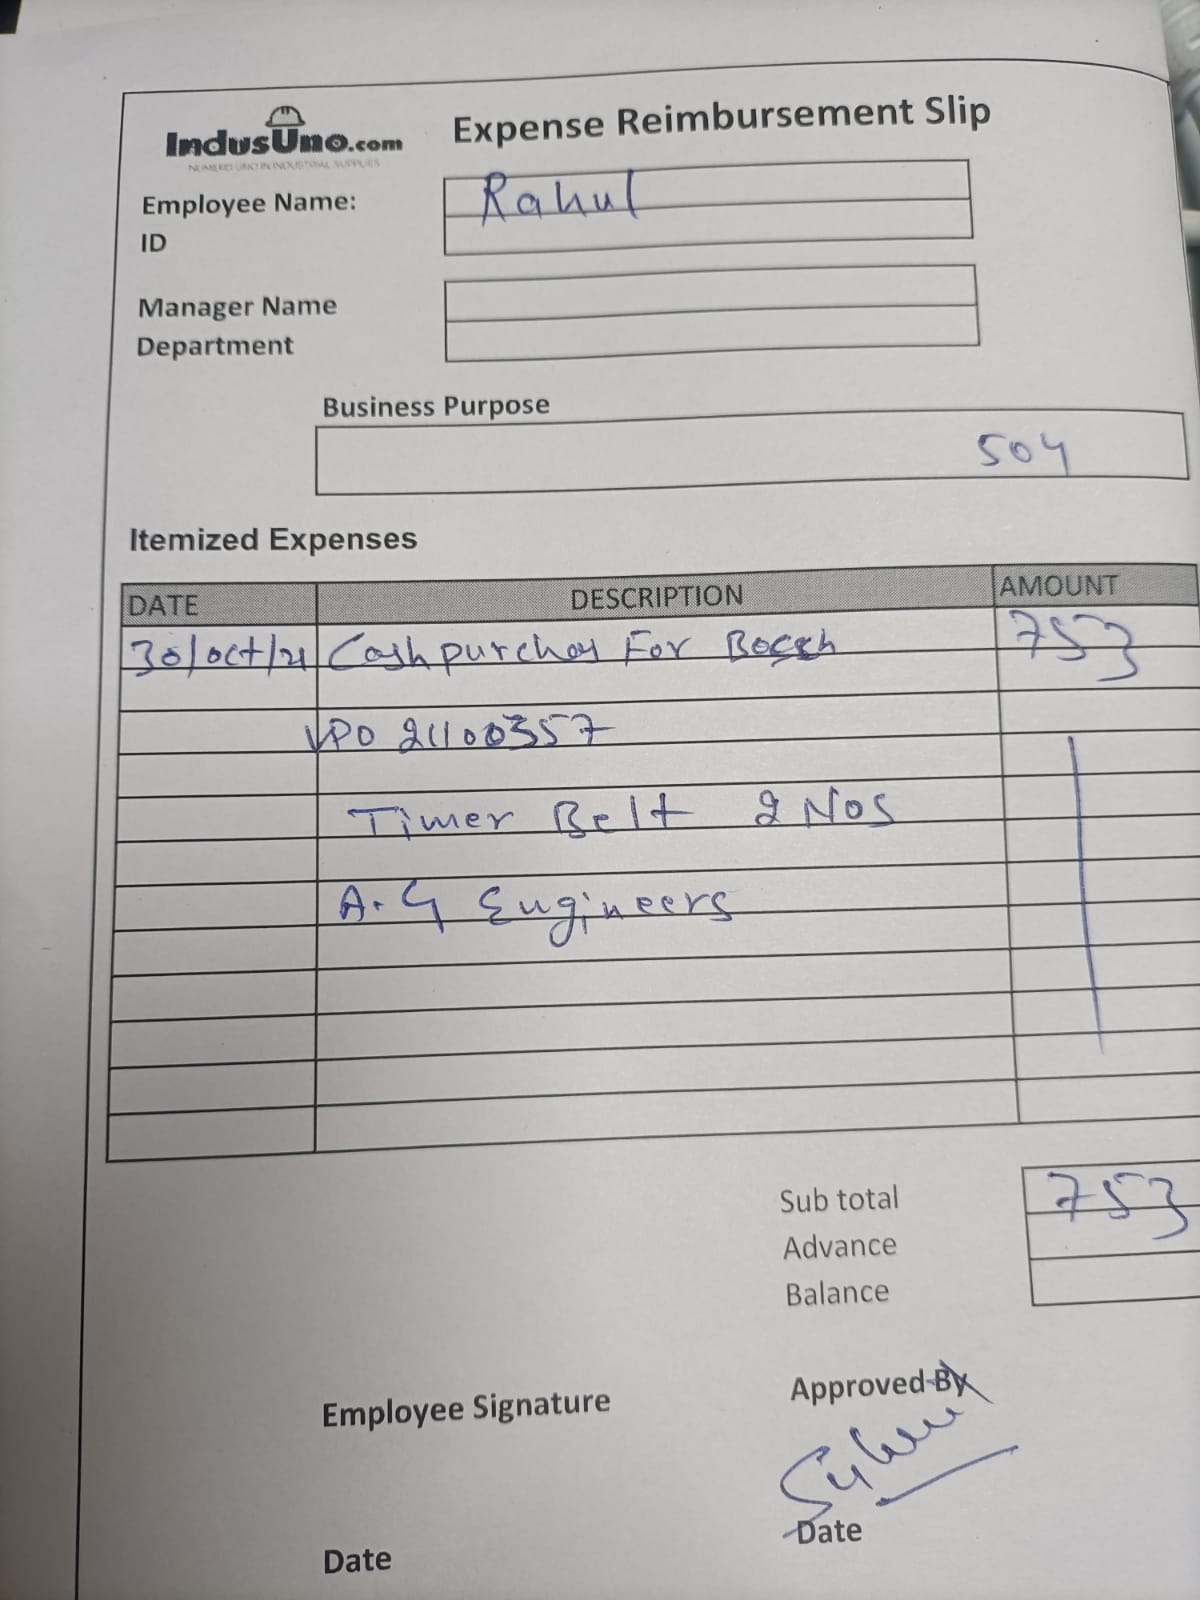 IndusUno.com
NUMERO UNO IN INDUSTRIAL SUPPLIES
Expense Reimbursement Slip
Employee Name: Rahul
ID
Manager Name
Department
Business Purpose
504
Itemized Expenses
DATE DESCRIPTION AMOUNT
30/oct/21 Cash purchas For Bossh 753
VPO 21100357
Timer Belt 2 Nos
A.G Engineers
Sub total 753
Advance
Balance
Employee Signature Approved By
Date
Date